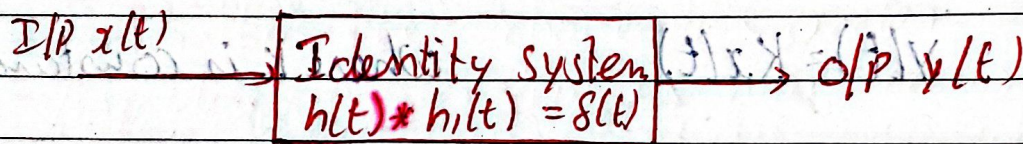 I/P x(t)
Identity system
h(t) * h₁(t) = δ(t)
O/P y(t)